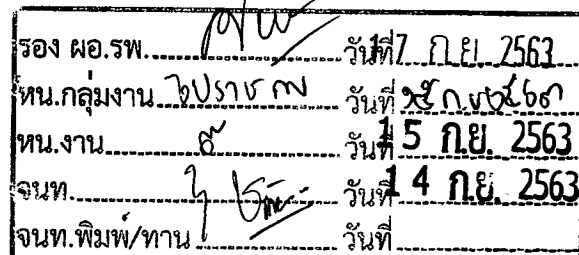 รอง ผอ.รพ. วันที่ 17 ก.ย. 2563
หน.กลุ่มงาน วันที่
หน.งาน วันที่ 15 ก.ย. 2563
จนท. วันที่ 14 ก.ย. 2563
จนท.พิมพ์/ทาน วันที่